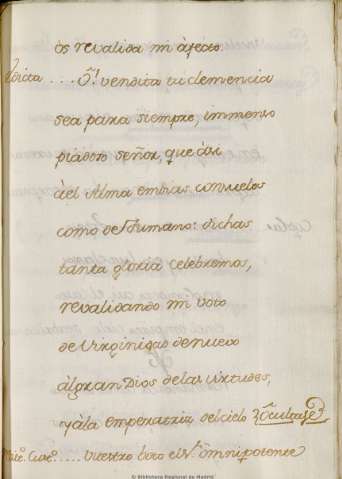 os revalida mi afecto.
O! vendita tu clemencia
sea para siempre, immenso
piadoso señor, que assi
del Alma embias consuelos
como de lo humano: dichas
tanta gloria celebremos,
revalidando mi voto
de Virginidad de nuevo
al gran Dios de las virtudes,
y a la emperatriz del cielo. Ocultase
vuestro voto el omnipotente
© Biblioteca Nacional de Madrid